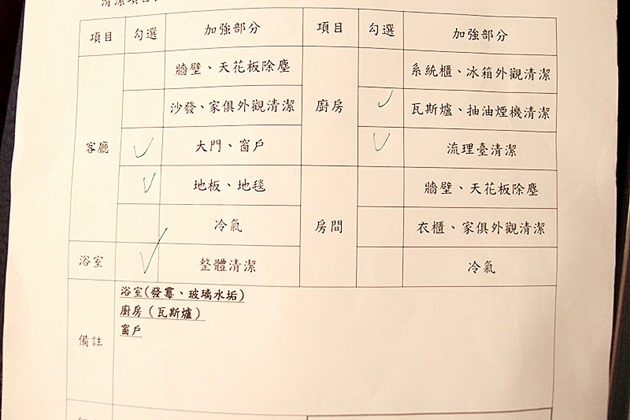 清潔項目
項目 勾選 加強部分 項目 勾選 加強部分
客廳 牆壁、天花板除塵 廚房 系統櫃、冰箱外觀清潔
沙發、家俱外觀清潔 ✓ 瓦斯爐、抽油煙機清潔
✓ 大門、窗戶 ✓ 流理臺清潔
✓ 地板、地毯 房間 牆壁、天花板除塵
冷氣 衣櫃、家俱外觀清潔
浴室 ✓ 整體清潔 冷氣
備註 浴室(發霉、玻璃水垢)
廚房(瓦斯爐)
窗戶